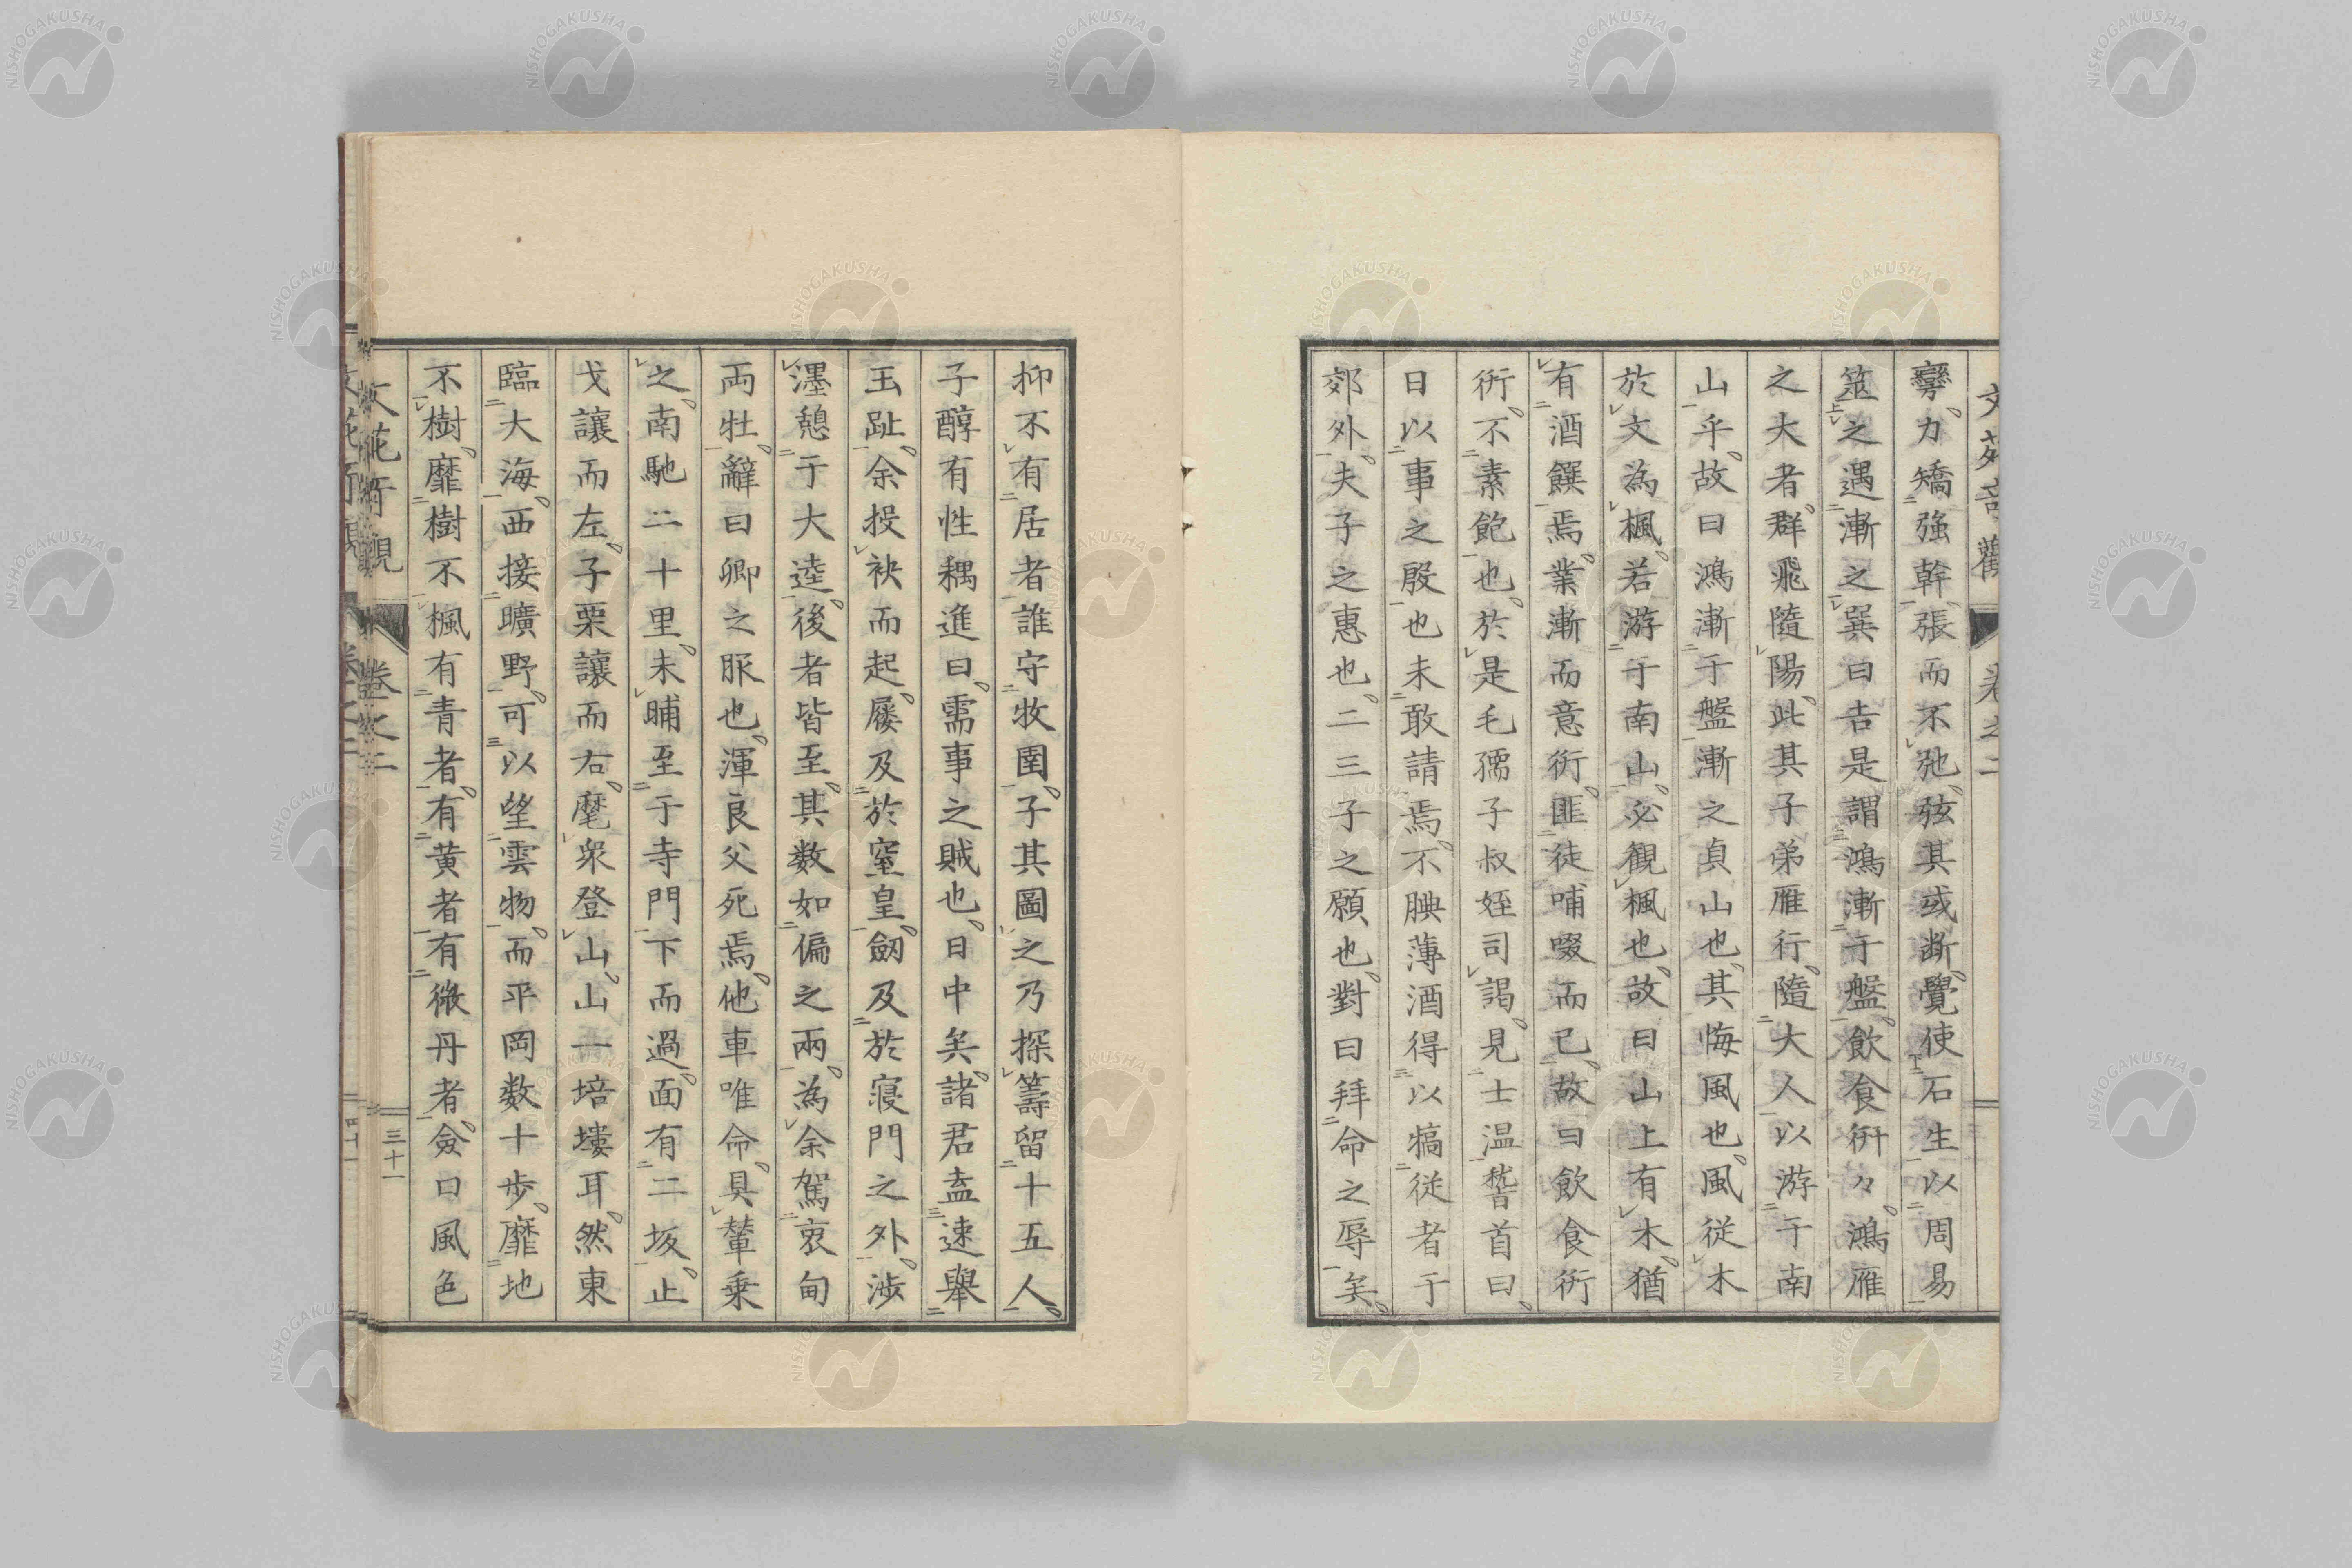 臠力矯強幹張而不弛弦其或断覺使石生以周易
筮之遇漸之巽曰吉是謂鴻漸于盤飲食衎々鴻雁
之大者群飛隨陽此其子弟雁行隨大人以游于南
山乎故曰鴻漸于盤漸之貞山也其悔風也風従木
於文為楓若游于南山必観楓也故曰山上有木猶
有酒饌焉業漸而意衎匪徒哺啜而已故曰飲食衎
衎不素飽也於是毛孺子叔姪司謁見士温稽首曰
日以事之殷也未敢請焉不腆薄酒得以犒従者于
郊外夫子之惠也二三子之願也對曰拜命之辱矣
抑不有居者誰守牧圉子其圖之乃探籌留十五人
子醇有性耦進曰需事之賊也日中矣諸君盍速舉
玉趾余投袂而起屨及於窒皇劔及於寝門之外渉
濹憩于大逵後者皆至其数如偏之兩為余駕衷甸
両牡辭曰卿之服也渾良父死焉他車唯命具輦乗
之南馳二十里未晡至于寺門下而過面有二坂止
戈讓而左子栗讓而右麾衆登山山一培塿耳然東
臨大海西接曠野可以望雲物而平岡数十歩靡地
不樹靡樹不楓有青者有黄者有微丹者僉曰風色
文苑奇觀
卷之二
三十一